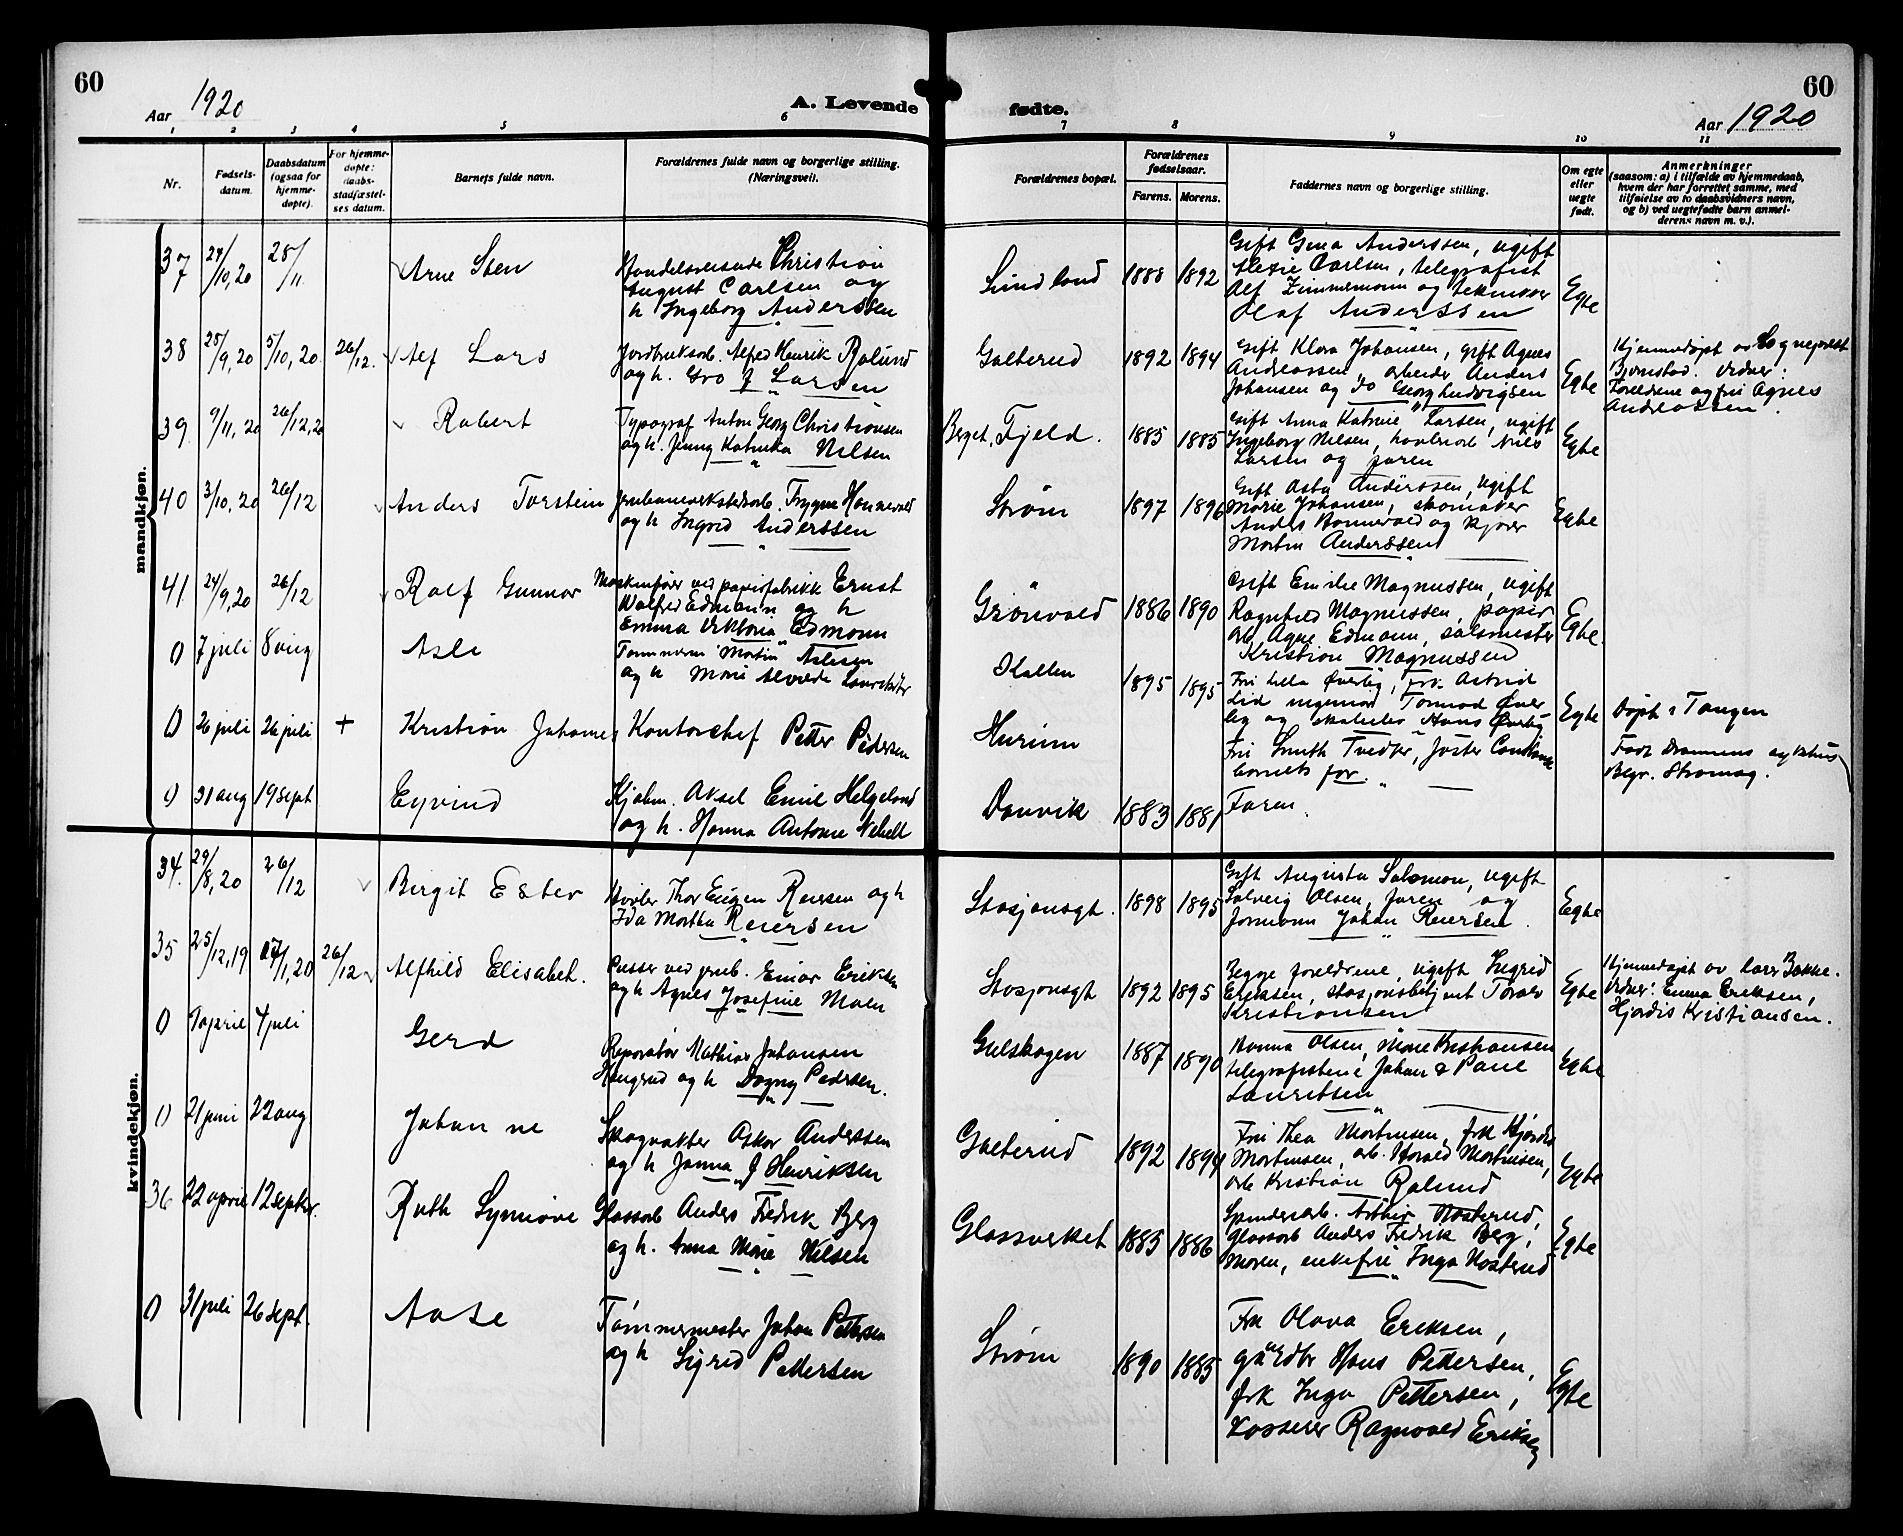 60
Aar 1920
A. Levende fødte.
60
Aar 1920
1 2 3 4 5 6 7 8 9 10 11
Nr.
Fødsels-
datum.
Daabsdatum
(ogsaa for
hjemme-
døpte).
For hjemme-
døpte:
daabs-
stadfæstel-
ses datum.
Barnets fulde navn.
Forældrenes fulde navn og borgerlige stilling.
(Næringsvei).
Forældrenes bopæl.
Forældrenes
fødselsaar.
Farens. Morens.
Faddernes navn og borgerlige stilling.
Om egte
eller
uegte
født.
Anmerkninger
(saasom: a) i tilfælde av hjemmedaab,
hvem der har forrettet samme, med
tilføielse av to daabsvidners navn,
og b) ved uegtefødte barn anmel-
derens navn m. v.).
mandkjøn.
37 24/10,20 28/11 Arne Sten
Handelsreisende Christian
August Carlsen og
h Ingeborg Anderssen
Sundland 1888 1892
Gift Gina Anderssen, ugift
Carlsen, telegrafist
Alf Zimmermann og tekniker
Olaf Anderssen
Egte
38 25/9,20 5/10,20 26/12. Alf Lars
Jordbruksarb. Alfred Henrik Rolund
og h. Gro J Larsen
Galterud 1892 1894
Gift Klara Johansen, gift Agnes
Andreassen, arbeider Anders
Johansen og Georg Ludvigsen
Egte
Hjemmedøpt av Sogneprest
Bjørnstad. Vidner:
Foreldrene og fru Agnes
Andreassen.
39 9/11,20 26/12,20 Robert
Typograf Anton Georg Christiansen
og h. Jenny Katinka Nilsen
Berget, Fjeld. 1885 1885
Gift Anna Katrine Larsen, ugift
Ingeborg Nilsen, Nils
Larsen og faren
Egte
40 3/10,20 26/12 Anders Torstein
Trygve Hannevold
og h Ingrid Anderssen
Strøm 1897 1896
Gift Asta Anderssen, ugift
Marie Johansen, skomaker
Anders Hannevold og kjører
Martin Anderssen
Egte
41 24/9,20 26/12 Ralf Gunnar
Maskinfører ved papirfabrikk Ernst
Walfred Edmann og h
Emma Viktoria Edmann
Grønvold 1886 1890
Gift Emilie Magnussen, ugift
Ragnhild Magnussen, papir
arb. Agne Edmann, salsmester
Kristian Magnussen
Egte.
0 7 juli 8 aug Asle
Tømmermann Martin Aslesen
og h Marie
Skallen 1895 1895
Fru Lilla Øverby, frk Astrid
Lid ingeniør Tormod Øver
by og Hans Øverby
Egte
Døpt i Tangen
0 26 juli 26 juli + Kristian Johannes
Kontorchef Petter Pedersen
Hurum
Fru Smith Tvedte, Søster
barnets far.
Født Drammens sykehus
Begr. Strømsg.
0 31 aug 19 sept Eyvind
Aksel Emil Helgeland
og h. Hanna Antonie
Danvik 1883 1881
Faren.
kvindekjøn.
34. 29/8,20 26/12 Birgit Ester
Høvler Thor Eugen Reiersen og h
Ida Martha Reiersen
Stasjonsgt. 1898 1895
Gift Augusta Salomon, ugift
Solveig Olsen, faren og
formann Johan Reiersen.
Egte
35 25/12,19 /1,20 26/12 Alfhild Elisabet.
Pusser ved jernb. Einar Eriksen
og h Agnes Josefine Moen
Stasjonsgt 1892 1895
Begge foreldrene, ugift Ingrid
Eriksen, stasjonsbetjent Torolv
Kristiansen
Egte
Hjemmedøpt av Lars Bakke.
Vidner: Emma Eriksen,
Hjørdis Kristiansen.
0 9 april 4 juli Gerd
Reparatør Mathias Johansen
Haugerud og h Dagny Pedersen.
Gulskogen 1887 1890
Hanna Olsen, Marie Kristiansen
telegrafistene Johan & Paul
Lauritsen
Egte
0 21 juni 22 aug Johanne
Skogvokter Oskar Andersen
og h Janna J Henriksen
Galterud 1892 1894
Fru Thea Mortensen, frk Hjørdis
Mortensen, arb. Harald Mortensen,
arb Kristian Rolund
Egte
36 22 april 12 septbr. Ruth Synnøve
Glassarb Anders Fredrik Berg
og h. Anna Marie Nilsen
Glassverket 1885 1886
Arthur Hosterud,
glassarb Anders Fredrik Berg,
moren, enkefru Inga Hosterud
Egte
0 31 juli 26 sept. Aase
Tømmermester Johan Pettersen
og h Sigrid Pettersen
Strøm 1890 1885
Frk Olava Eriksen,
gårdbr Hans Pettersen,
frk Inga Pettersen,
kasserer Ragnvald Eriksen
Egte